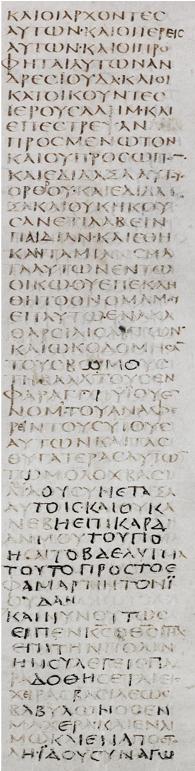 ΚΑΙΟΙΑΡΧΟΝΤΕΣ
ΑΥΤΩΝ·ΚΑΙΟΙΙΕΡΕΙΣ
ΑΥΤΩΝ·ΚΑΙΟΙΠΡΟ
ΦΗΤΑΙΑΥΤΩΝΑΝ
ΔΡΕΣΙΟΥΔΑ·ΚΑΙΟΙ
ΚΑΤΟΙΚΟΥΝΤΕΣ
ΙΕΡΟΥΣΑΛΗΜ·ΚΑΙ
ΕΠΕΣΤΡΕΨΑΝ
ΠΡΟΣΜΕΝΩΤΟΝ
ΚΑΙΟΥΠΡΟΣΩΠΟ̅
ΚΑΙΕΔΙΔΑΞΑΑΥΤΟΥΣ
ΟΡΘΡΟΥΚΑΙΕΔΙΔΑ
ΞΑΚΑΙΟΥΚΗΚΟΥ
ΣΑΝΕΤΙΛΑΒΕΙΝ
ΠΑΙΔΙΑΝ·ΚΑΙΕΘΗ
ΚΑΝΤΑΜΙΑΣΜΑ
ΤΑΑΥΤΩΝΕΝΤΩ
ΟΙΚΩΟΥΕΠΕΚΛΗ
ΘΗΤΟΟΝΟΜΑΜΟΥ
ΕΠΑΥΤΩΕΝΑΚΑ
ΘΑΡΣΙΑΙΣΑΥΤΩΝ
ΚΑΙΩΚΟΔΟΜΗΣΑ̅
ΤΟΥΣΒΩΜΟΥΣ
ΤΗΒΑΑΛΤΟΥΣΕΝ
ΦΑΡΑΓΓΙΥΙΟΥΕ
ΝΟΜ·ΤΟΥΑΝΑΦΕ
ΡΕΙΝΤΟΥΣΥΙΟΥΣ
ΑΥΤΩΝΚΑΙΤΑΣ
ΘΥΓΑΤΕΡΑΣΑΥΤΩ̅
ΤΩΜΟΛΟΧΒΑΣΙ
ΛΕΙΑΟΥΣΥΝΕΤΑΞΑ
ΑΥΤΟΙΣΚΑΙΟΥΚΑ
ΝΕΒΗΕΠΙΚΑΡΔΙ
ΑΝΜΟΥΤΟΥΠΟΙ
ΗΣΑΙΤΟΒΔΕΛΥΓΜΑ
ΤΟΥΤΟΠΡΟΣΤΟΕ
ΦΑΜΑΡΤΙΝΤΟΝΪ
ΟΥΔΑΝ
ΚΑΙΝΥΝΟΥΤΩΣ
ΕΙΠΕΝΚΣΟΘΣΙΣΛ
ΕΠΙΤΗΝΠΟΛΙΝ
ΗΝΣΥΛΕΓΕΙΣΠΑ
ΡΑΔΟΘΗΣΕΤΑΙΕΙΣ
ΧΕΙΡΑΣΒΑΣΙΛΕΩΣ
ΒΑΒΥΛΩΝΟΣΕΝ
ΜΑΧΕΡΑ·ΚΑΙΕΝΛΙ
ΜΩΚΑΙΕΝΑΠΟΣΤΟ
ΛΗΪΔΟΥΣΥΝΑΓΩ